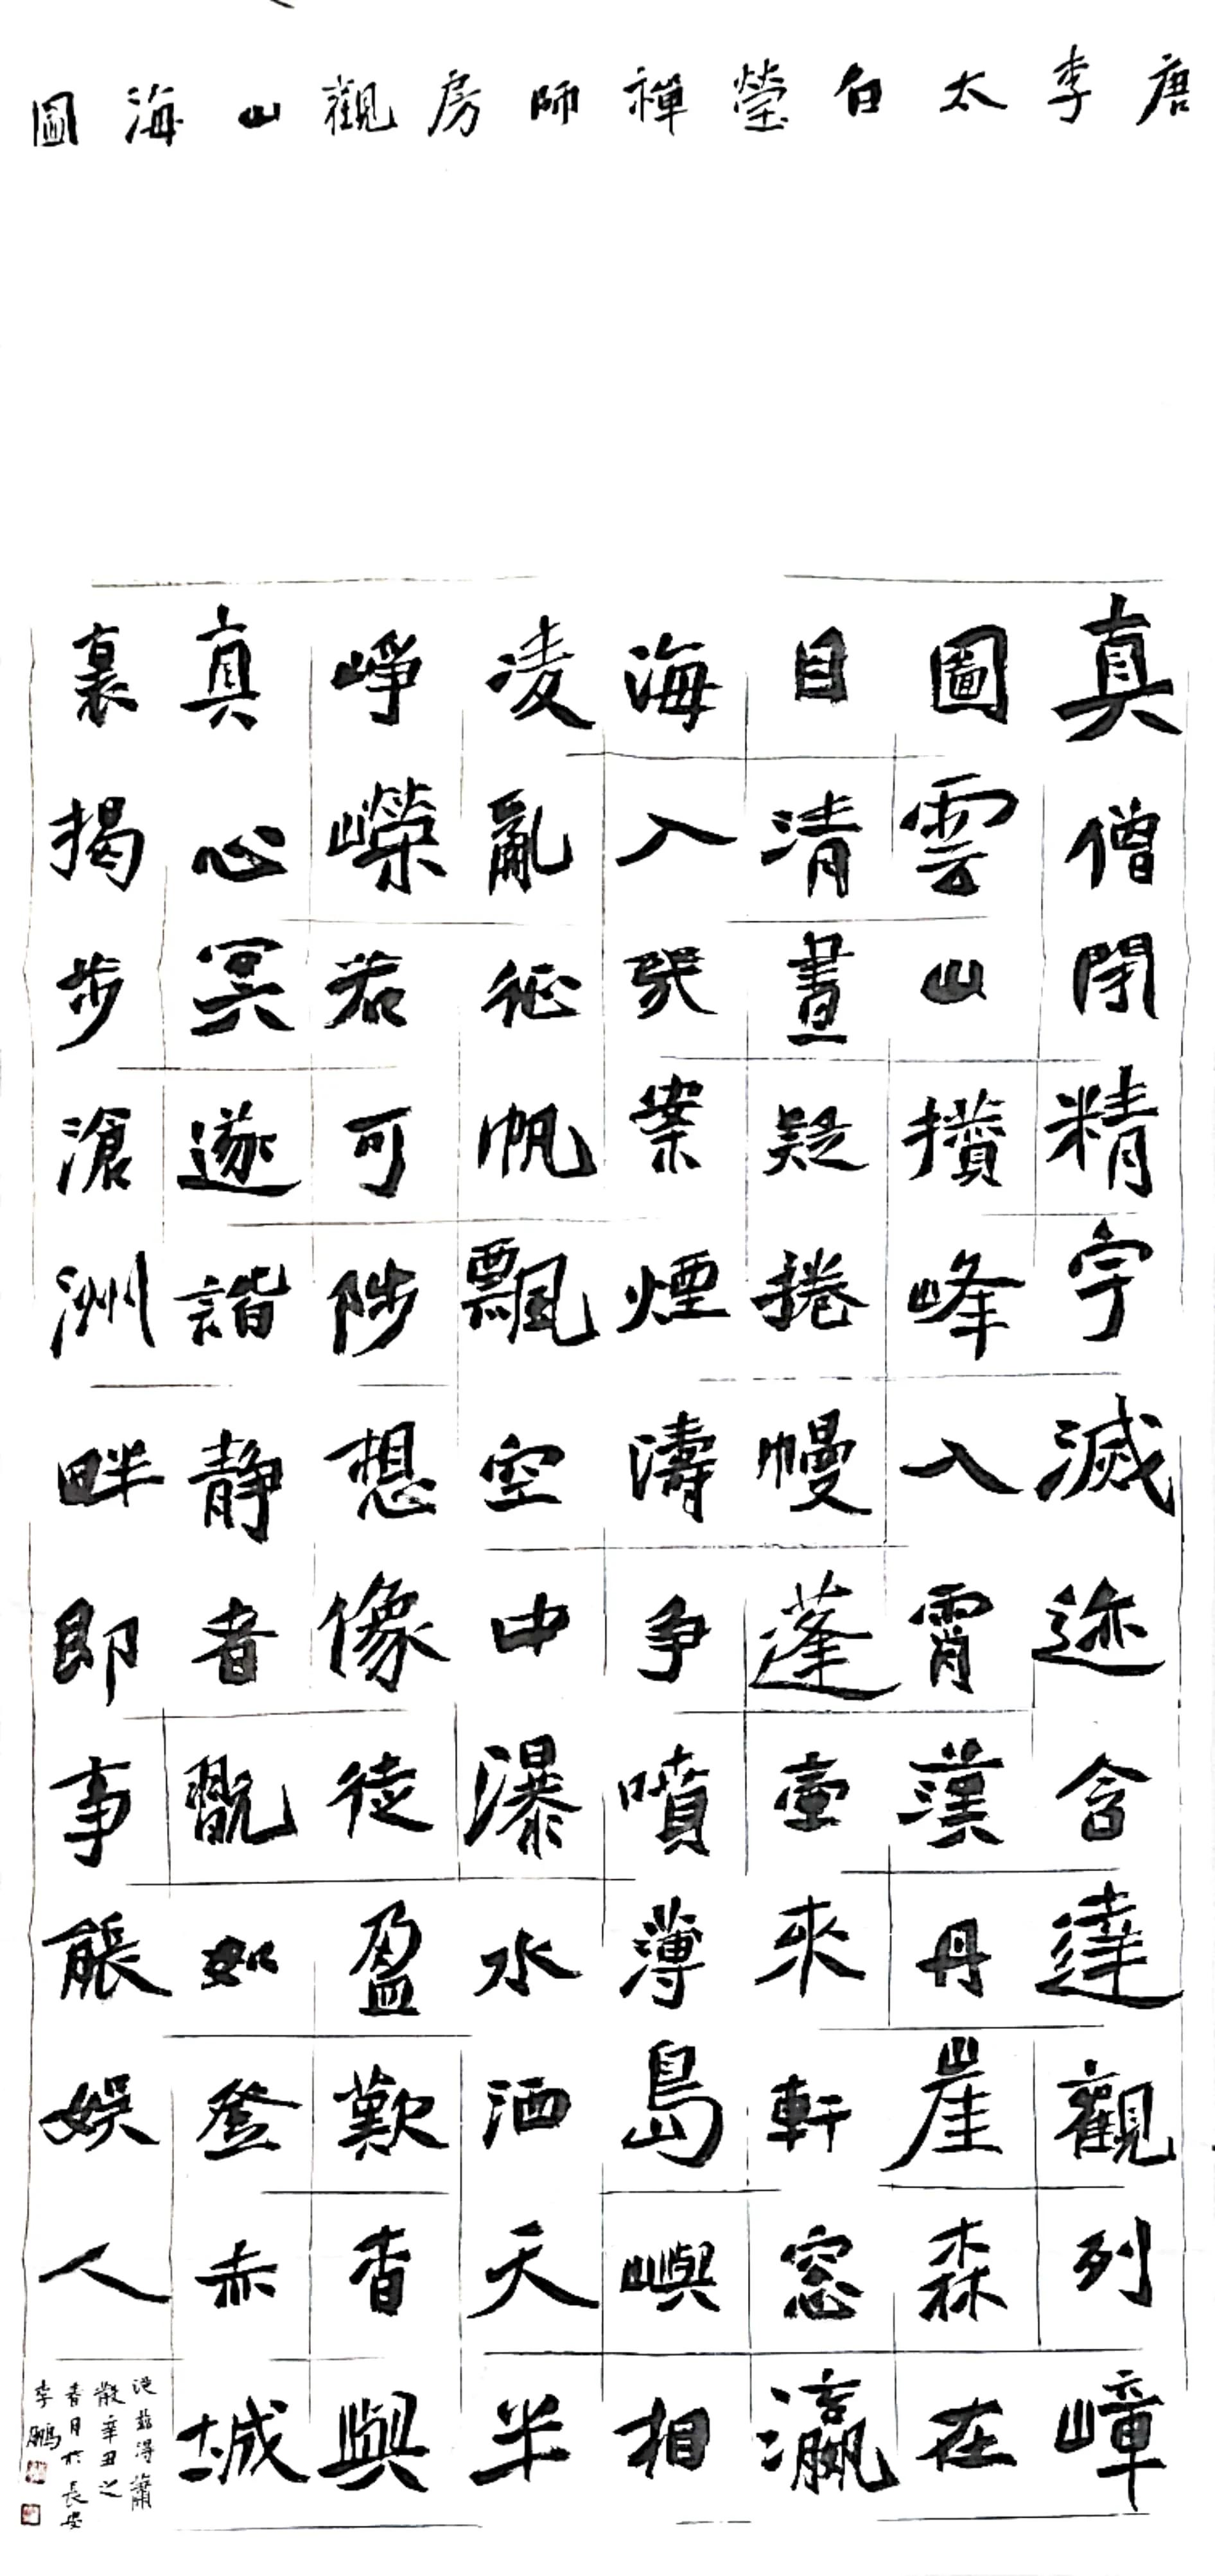 唐李太白瑩禪師房觀山海圖
真僧閉精宇滅迹含達觀列嶂
圖雲山攢峰入霄漢丹崖森在
目清晝疑捲幔蓬壺來軒窓瀛
海入張案煙濤爭噴薄島嶼相
凌亂征帆飄空中瀑水洒天半
崢嶸若可陟想像徒盈歎杳與
真心冥遂諧静者翫如登赤城
裏揭步滄洲畔即事能娛人
從兹得蕭
散辛丑之
春月於長安
李鵬